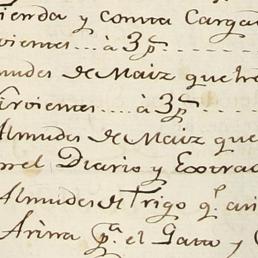 ienda y Contra Carga
vientes...à 3p.s
mudes de Maiz que he
Sirvientes....à 3p.s
Almudes de Maiz que
en el Diario y Extrao
Almudes de Trigo q.e
Arina p.a el Gasto y